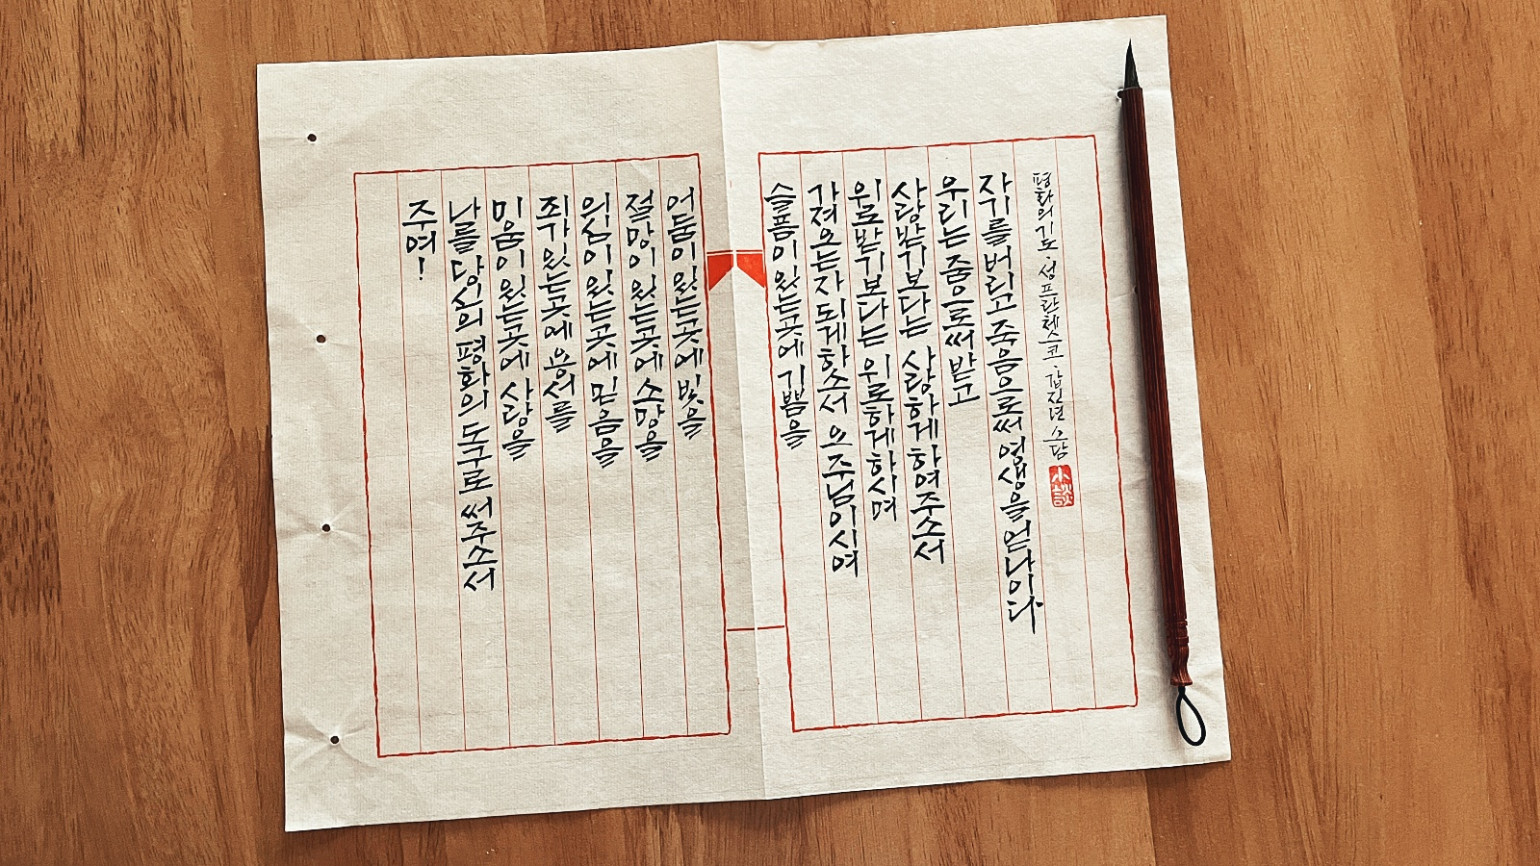 주여!
나를 당신의 평화의 도구로 써주소서
미움이 있는곳에 사랑을
죄가있는곳에 용서를
의심이 있는곳에 믿음을
절망이 있는곳에 소망을
어둠이 있는곳에 빛을
슬픔이 있는곳에 기쁨을
가져오는자 되게하소서 오 주님이시여
위로받기보다는 위로하게하시며
사랑받기보다는 사랑하게하여주소서
우리는 줌으로써 받고
자기를버리고 죽음으로써 영생을 얻나이다
평화의기도·성프란체스코·갑진년 소담
小談